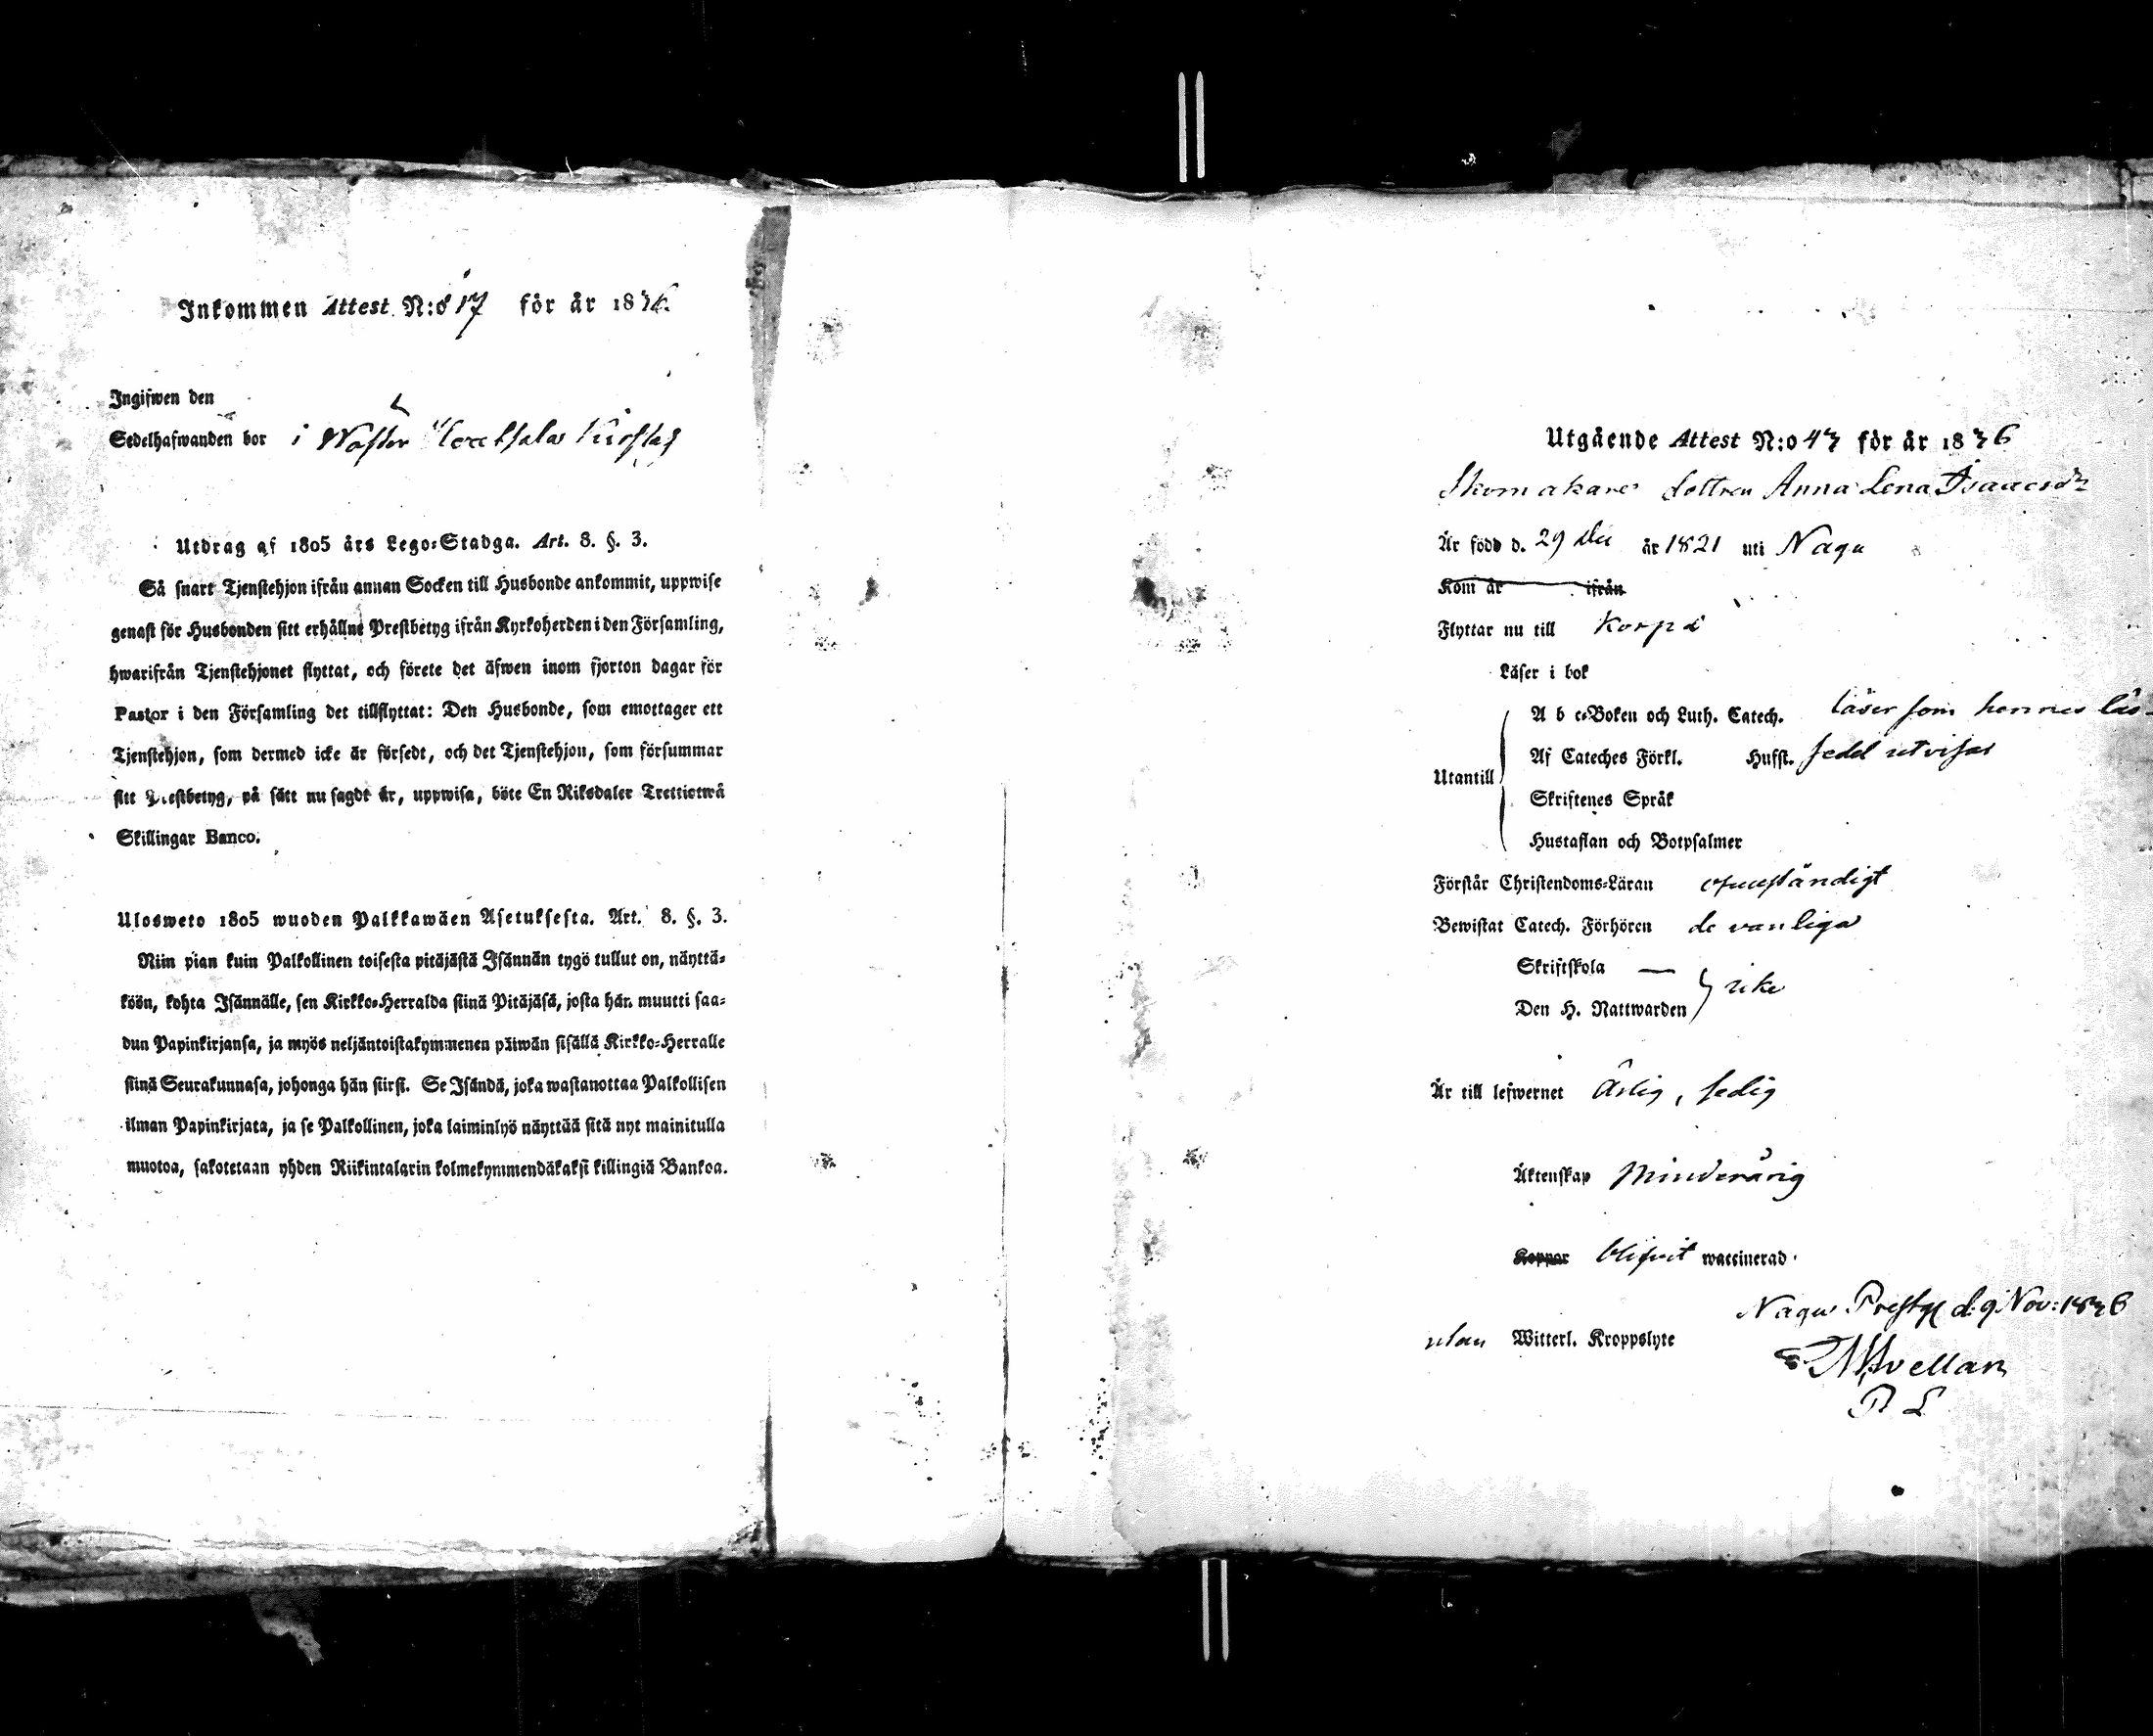 Inkommen Attest N:o 17 för år 1836.
Ingifwen den
Sedelhafwanden bor i
Utdrag af 1805 års Lego-Stadga. Art. 8. §. 3.
Så snart Tjenstehjon ifrån annan Socken till Husbonde ankommit, uppwise
genast för Husbonden sitt erhållne Prestbetyg ifrån Kyrkoherden i den Församling,
hwarifrån Tjenstehjonet flyttat, och förete det äfwen inom fjorton dagar för
Pastor i den Församling det tillflyttat: Den Husbonde, som emottager ett
Tjenstehjon, som dermed icke är försedt, och det Tjenstehjon, som försummar
sitt Prestbetyg, på sätt nu sagdt är, uppwisa, böte En Riksdaler Trettiotwå
Skillingar Banco.
Ulosweto 1805 wuoden Palkkawäen Asetuksesta. Art. 8. §. 3.
Niin pian kuin Palkollinen toisesta pitäjästä Isännän tygö tullut on, näyttä-
köön, kohta Isännälle, sen Kirkko-Herralda siinä Pitäjäsä, josta hän muutti saa-
dun Papinkirjansa, ja myös neljäntoistakymmenen päiwän sisällä Kirkko-Herralle
siinä Seurakunnasa, johonga hän siirsi. Se Isändä, joka wastanottaa Palkollisen
ilman Papinkirjata, ja se Palkollinen, joka laiminlyö näyttää sitä nyt mainitulla
muotoa, sakotetaan yhden Riikintalarin kolmekymmendäkaksi killingiä Bankoa.
Utgående Attest N:o 43 för år 1836
Skomakare dottren Anna Lena Isaacsdr
Är född d. 29 Dec år 1821 uti Nagu
Kom år ifrån
Flyttar nu till Korpo
Läser i bok
A b c-Boken och Luth. Catech. läser som hennes läs-
Af Cateches Förkl. Husst. sedel utvisar
Utantill
Skriftenes Språk
Hustaflan och Botpsalmer
Förstår Christendoms-Läran
Bewistat Catech. Förhören de vanliga
Skriftskola —
Den H. Nattwarden icke
Är till lefwernet Ärlig, sedig
Äktenskap Minderårig
Koppor blifvit waccinerad
Nagu Prestg d: 9 Nov: 1836
utan Witterl. Kroppslyte